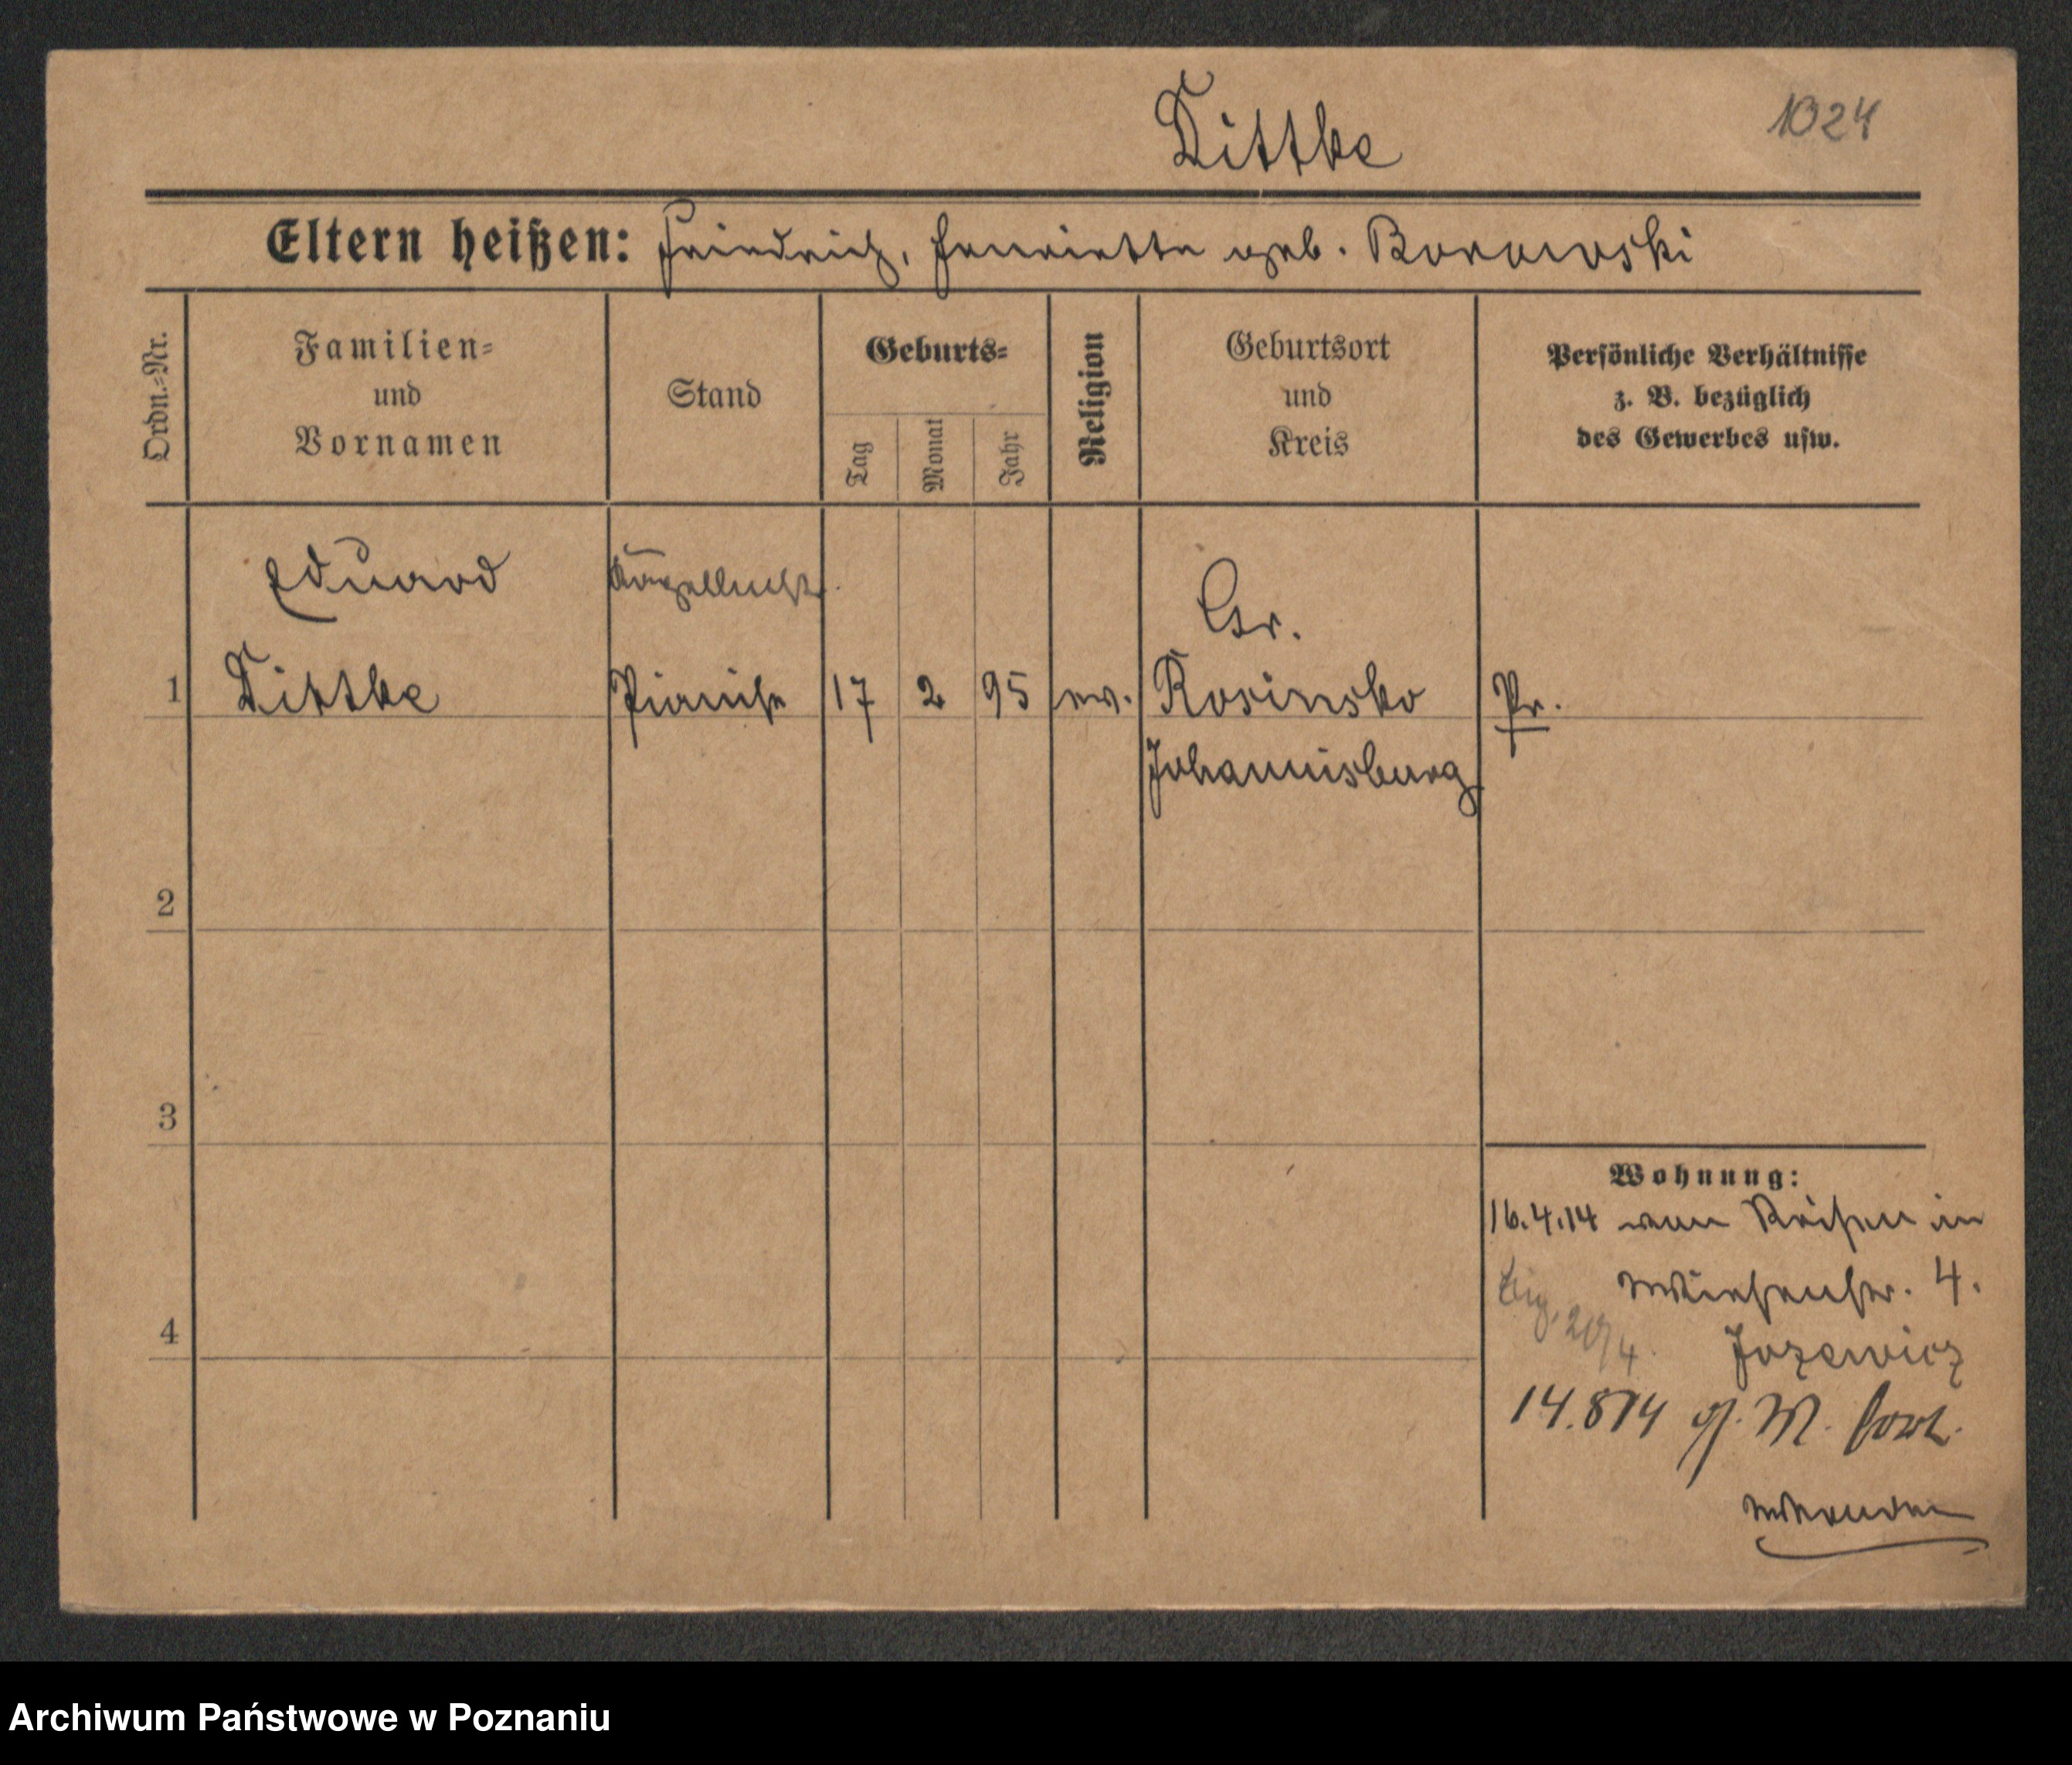 Dittke
1024
Eltern heißen: Friedrich, Henriette geb. Borowski
Ordn.-Nr.
Familien-
und
Vornamen
Stand
Geburts-
Tag
Monat
Jahr
Religion
Geburtsort
und
Kreis
Persönliche Verhältnisse
z. B. bezüglich
des Gewerbes usw.
Eduard
Gr.
1 Dittke Pianist 17 2 95 ev. Rosinsko Pr.
Johannisburg
2
3
Wohnung:
16.4.14 von Reisen in
Wiesenstr. 4.
4
Jozewicz
14.8 14
Archiwum Państwowe w Poznaniu